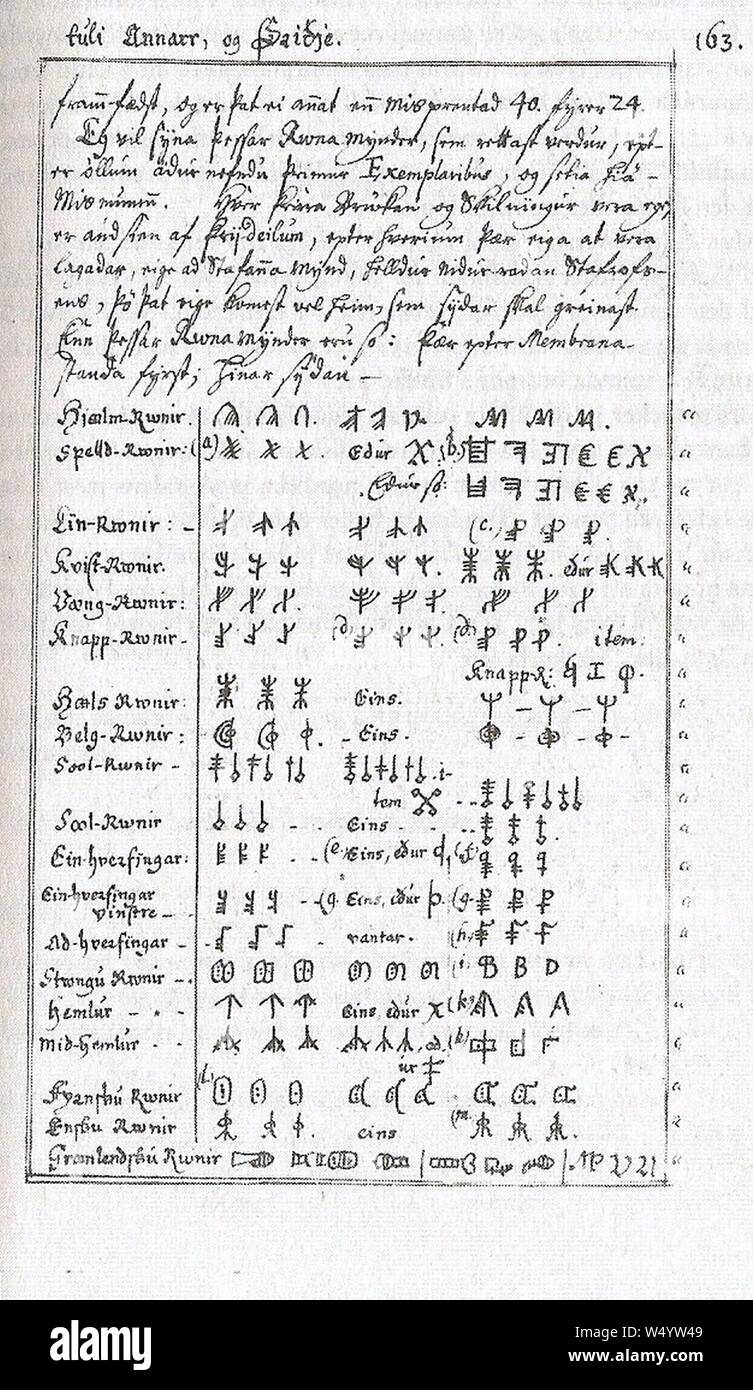 tuli Annarr, og Sakje. 163.
framm-fædst, og er þat ei annat enn Misprentad 40. fyrer 24.
Eg vil syna þessar Rwna Mynder, sem rettast verdur, ept-
er öllum ádur nefndu þrimur Exemplaribus, og setia hiá-
Mismunin. Hver þeirra Bruckan og Skilningur vera
er andsien af þrijdeilum, epter hverium þær eiga at vera
lagadar, eige ad Stafanna Mynd, helldur nidur-radan Stafrofs-
ens, þó þat eige komest vel heim, sem sydar skal greinast.
Enn þessar Rwna Mynder eru so: þær epter Membrana-
standa fyrst, hinar sydan -
Hiælm-Rwnir.
Spelld-Rwnir: (a) Edur (b.)
Edur so:
Lin-Rwnir: - (c.)
Kvist-Rwnir. edur
Væng-Rwnir:
Knapp-Rwnir - (d.) (d.) item:
Knapp-R:
Hæls Rwnir: Eins.
Belg-Rwnir: - Eins.
Sool-Rwnir - i-
tem
Sool-Rwnir Eins
Ein-hverfingar: (e. Eins, edur (f.)
Ein-hverfingar
vinstre - (g. Eins, edur þ. (g.
Ad-hverfingar - vantar. (h.
Stwngu Rwnir - (i.
Hemlur - - - Eins, edur (k.
Mid-Hemlur - - ed- (k)
ur
(l.)
Rwnir
Ensku Rwnir eins (m.
Grænlendsku Rwnir
alamy
Image ID: W4YW49
www.alamy.com